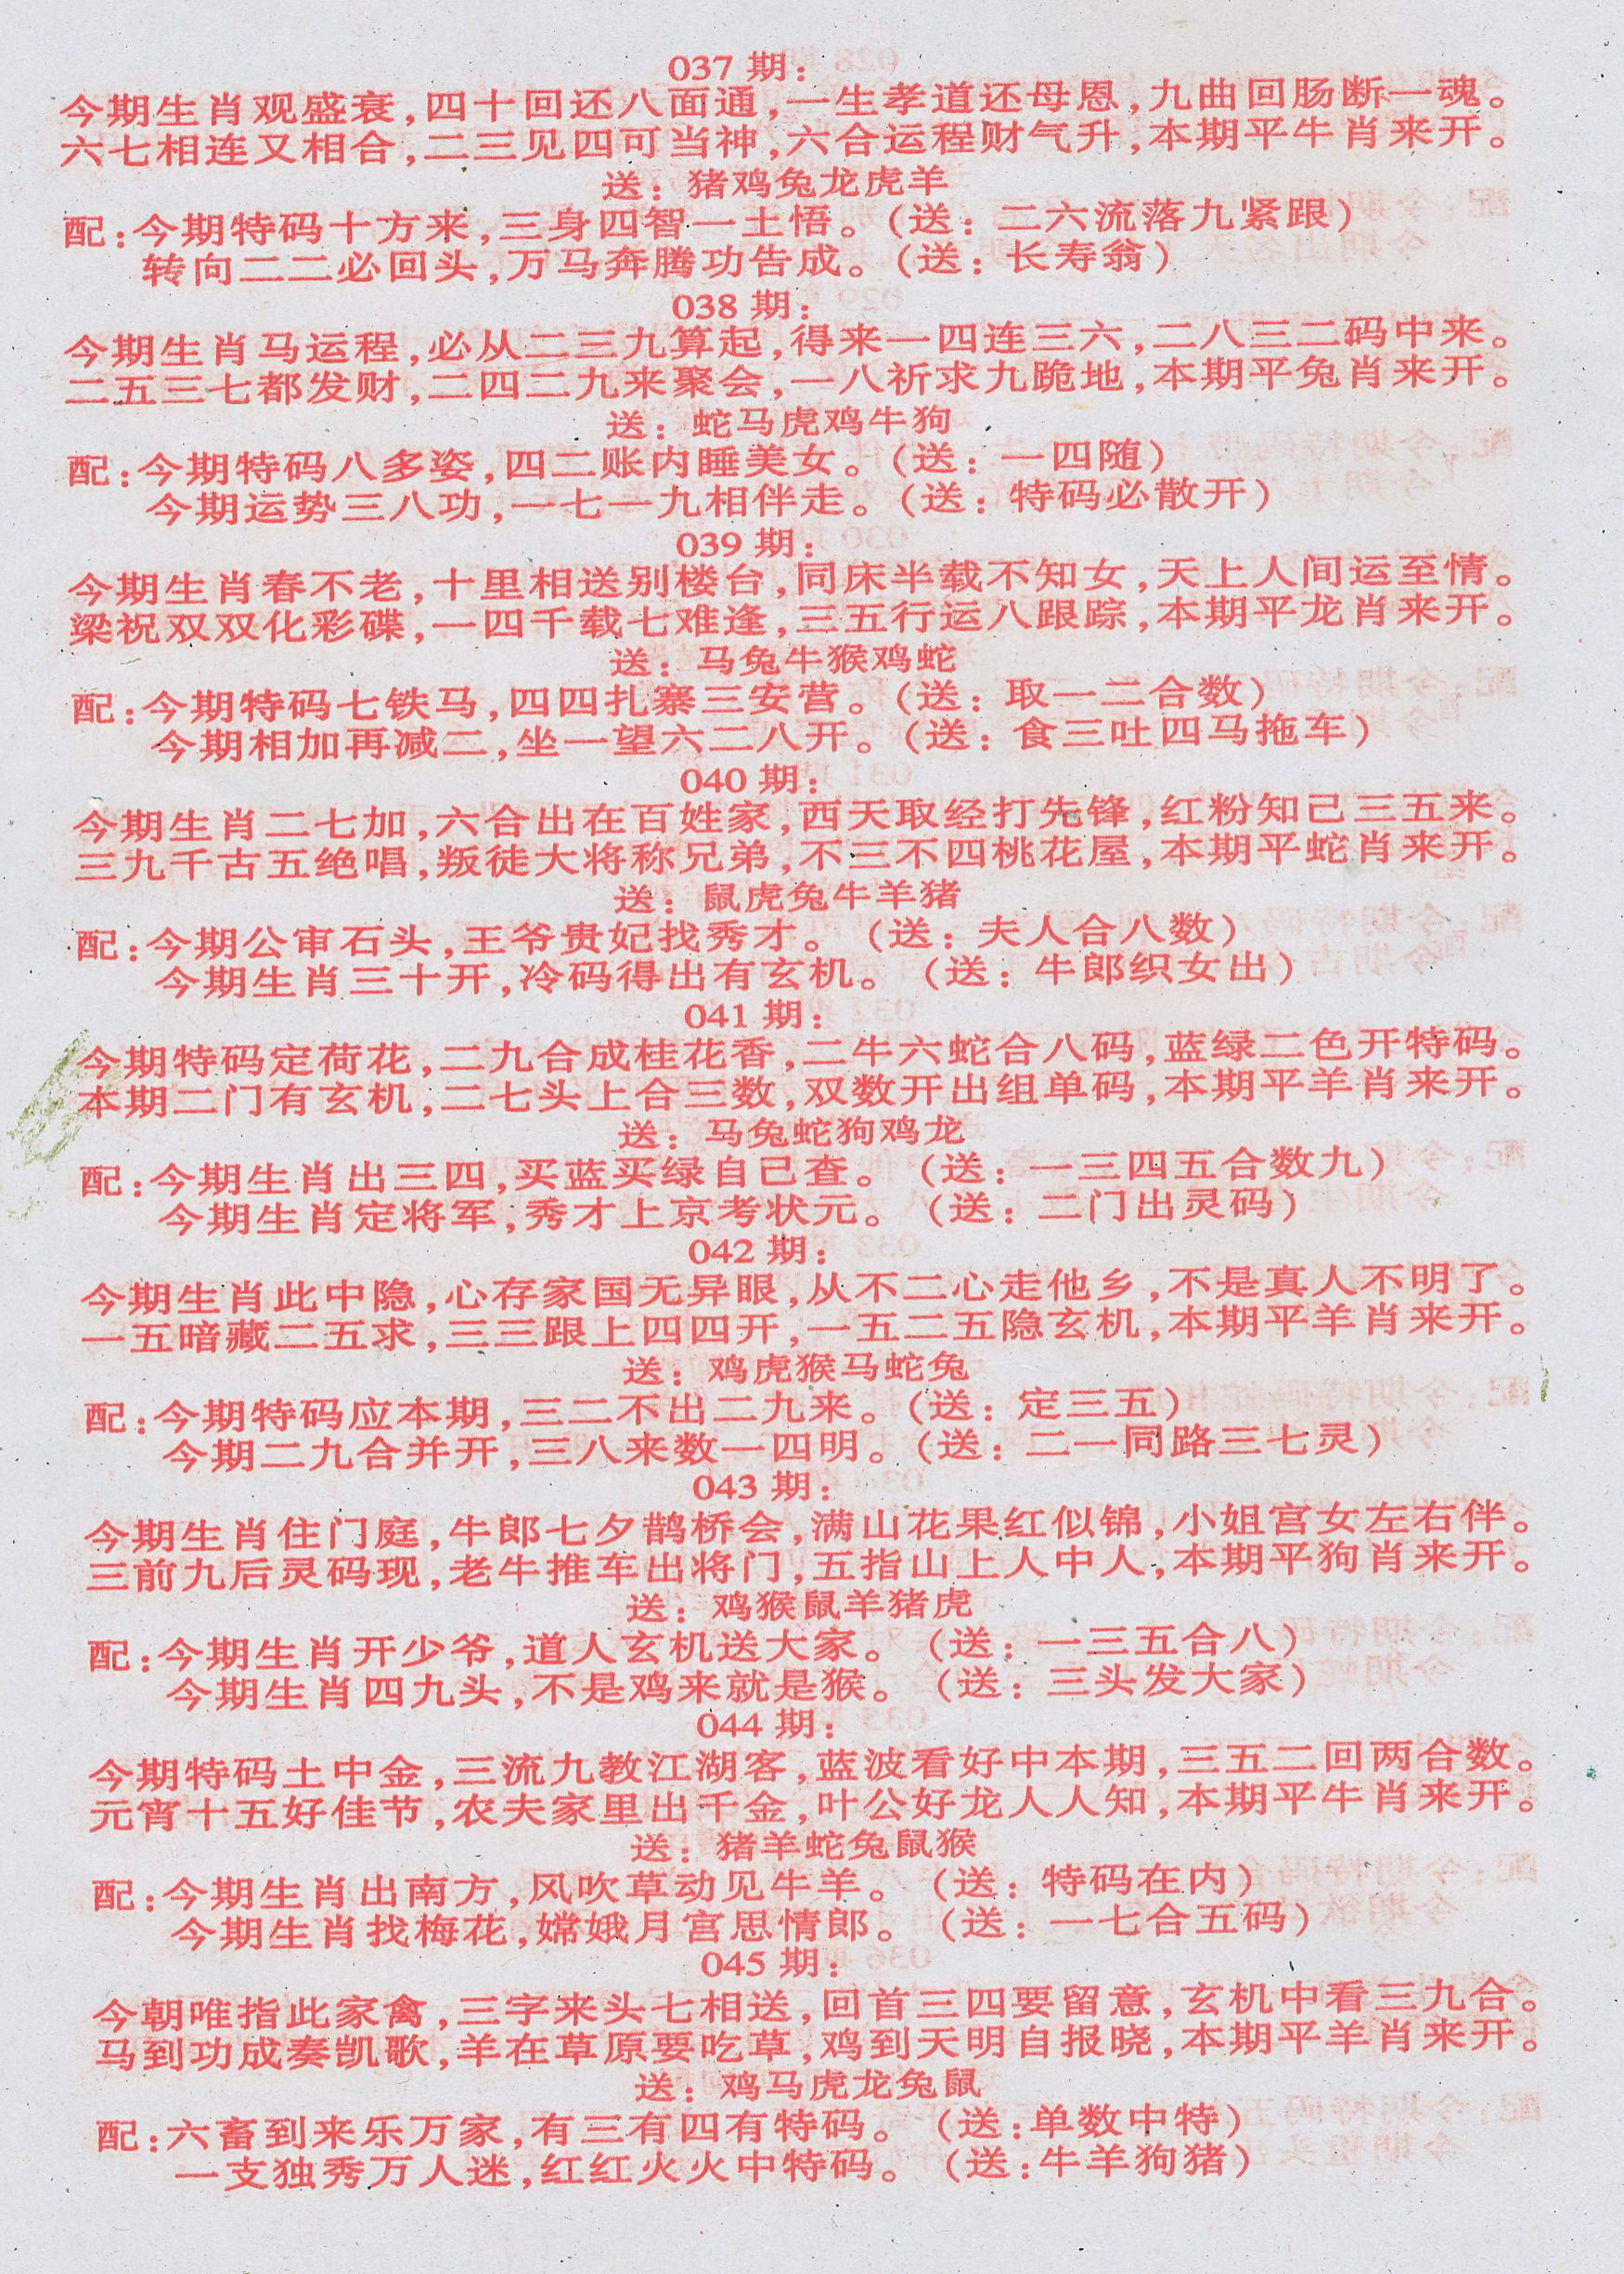 037 期：
今期生肖观盛衰，四十回还八面通，一生孝道还母恩，九曲回肠断一魂。
六七相连又相合，二三见四可当神，六合运程财气升，本期平牛肖来开。
送：猪鸡兔龙虎羊
配：今期特码十方来，三身四智一土悟。（送：二六流落九紧跟）
转向二二必回头，万马奔腾功告成。（送：长寿翁）
038 期：
今期生肖马运程，必从二三九算起，得来一四连三六，二八三二码中来。
二五三七都发财，二四二九来聚会，一八祈求九跪地，本期平兔肖来开。
送：蛇马虎鸡牛狗
配：今期特码八多姿，四二账内睡美女。（送：一四随）
今期运势三八功，一七一九相伴走。（送：特码必散开）
039 期：
今期生肖春不老，十里相送别楼台，同床半载不知女，天上人间运至情。
梁祝双双化彩碟，一四千载七难逢，三五行运八跟踪，本期平龙肖来开。
送：马兔牛猴鸡蛇
配：今期特码七铁马，四四扎寨三安营。（送：取一二合数）
今期相加再减二，坐一望六二八开。（送：食三吐四马拖车）
040 期：
今期生肖二七加，六合出在百姓家，西天取经打先锋，红粉知己三五来。
三九千古五绝唱，叛徒大将称兄弟，不三不四桃花屋，本期平蛇肖来开。
送：鼠虎兔牛羊猪
配：今期公审石头，王爷贵妃找秀才。（送：夫人合八数）
今期生肖三十开，冷码得出有玄机。（送：牛郎织女出）
041 期：
今期特码定荷花，二九合成桂花香，二牛六蛇合八码，蓝绿二色开特码。
本期二门有玄机，二七头上合三数，双数开出组单码，本期平羊肖来开。
送：马兔蛇狗鸡龙
配：今期生肖出三四，买蓝买绿自己查。（送：一三四五合数九）
今期生肖定将军，秀才上京考状元。（送：二门出灵码）
042 期：
今期生肖此中隐，心存家国无异眼，从不二心走他乡，不是真人不明了。
一五暗藏二五求，三三跟上四四开，一五二五隐玄机，本期平羊肖来开。
送：鸡虎猴马蛇兔
配：今期特码应本期，三二不出二九来。（送：定三五）
今期二九合并开，三八来数一四明。（送：二一同路三七灵）
043 期：
今期生肖住门庭，牛郎七夕鹊桥会，满山花果红似锦，小姐宫女左右伴。
三前九后灵码现，老牛推车出将门，五指山上人中人，本期平狗肖来开。
送：鸡猴鼠羊猪虎
配：今期生肖开少爷，道人玄机送大家。（送：一三五合八）
今期生肖四九头，不是鸡来就是猴。（送：三头发大家）
044 期：
今期特码土中金，三流九教江湖客，蓝波看好中本期，三五二回两合数。
元宵十五好佳节，农夫家里出千金，叶公好龙人人知，本期平牛肖来开。
送：猪羊蛇兔鼠猴
配：今期生肖出南方，风吹草动见牛羊。（送：特码在内）
今期生肖找梅花，嫦娥月宫思情郎。（送：一七合五码）
045 期：
今朝唯指此家禽，三字来头七相送，回首三四要留意，玄机中看三九合。
马到功成奏凯歌，羊在草原要吃草，鸡到天明自报晓，本期平羊肖来开。
送：鸡马虎龙兔鼠
配：六畜到来乐万家，有三有四有特码。（送：单数中特）
一支独秀万人迷，红红火火中特码。（送：牛羊狗猪）